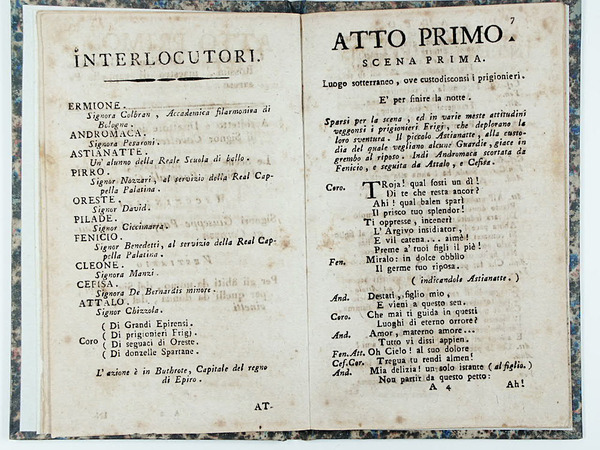 INTERLOCUTORI.
ERMIONE.
Signora Colbran, Accademica filarmonica di
Bologna.
ANDROMACA.
Signora Pesaroni.
ASTIANATTE.
Un' alunno della Reale Scuola di ballo.
PIRRO.
Signor Nozzari, al servizio della Real Cap-
pella Palatina.
ORESTE.
Signor David.
PILADE.
Signor Ciccimarra.
FENICIO.
Signor Benedetti, al servizio della Real Cap-
pella Palatina.
CLEONE.
Signora Manzi.
CEFISA.
Signora De Bernardis minore.
ATTALO.
Signor Chizzola.
( Di Grandi Epirensi.
Coro ( Di prigionieri Frigj.
( Di seguaci di Oreste.
( Di donzelle Spartane.
L' azione è in Buthrote, Capitale del regno
di Epiro.
AT-
7
ATTO PRIMO.
SCENA PRIMA.
Luogo sotterraneo, ove custodisconsi i prigionieri.
E' per finire la notte.
Sparsi per la scena, ed in varie meste attitudini
veggonsi i prigionieri Frigj, che deplorano la
loro sventura. Il piccolo Astianatte, alla custo-
dia del quale vegliano alcune Guardie, giace in
grembo al riposo. Indi Andromaca scortata da
Fenicio, e seguita da Attalo, e Cefisa.
Coro. TRoja! qual fosti un dì!
Di te che resta ancor?
Ahi! qual balen sparì
Il prisco tuo splendor!
Ti oppresse, incenerì
L' Argivo insidiator,
E vil catena... aimè!
Preme a' tuoi figli il piè!
Fen. Miralo: in dolce obblìo
Il germe tuo riposa.
( indicandole Astianatte. )
And. Destati, figlio mio,
E vieni a questo sen.
Coro. Che mai ti guida in questi
Luoghi di eterno orrore?
And. Amor, materno amore...
Tutto vi dissi appien.
Fen. Att. Oh Cielo! al suo dolore
Cef. Cor. Tregua tu rendi almen!
And. Mia delizia! un solo istante ( al figlio. )
Non partir da questo petto:
A 4
Ah!